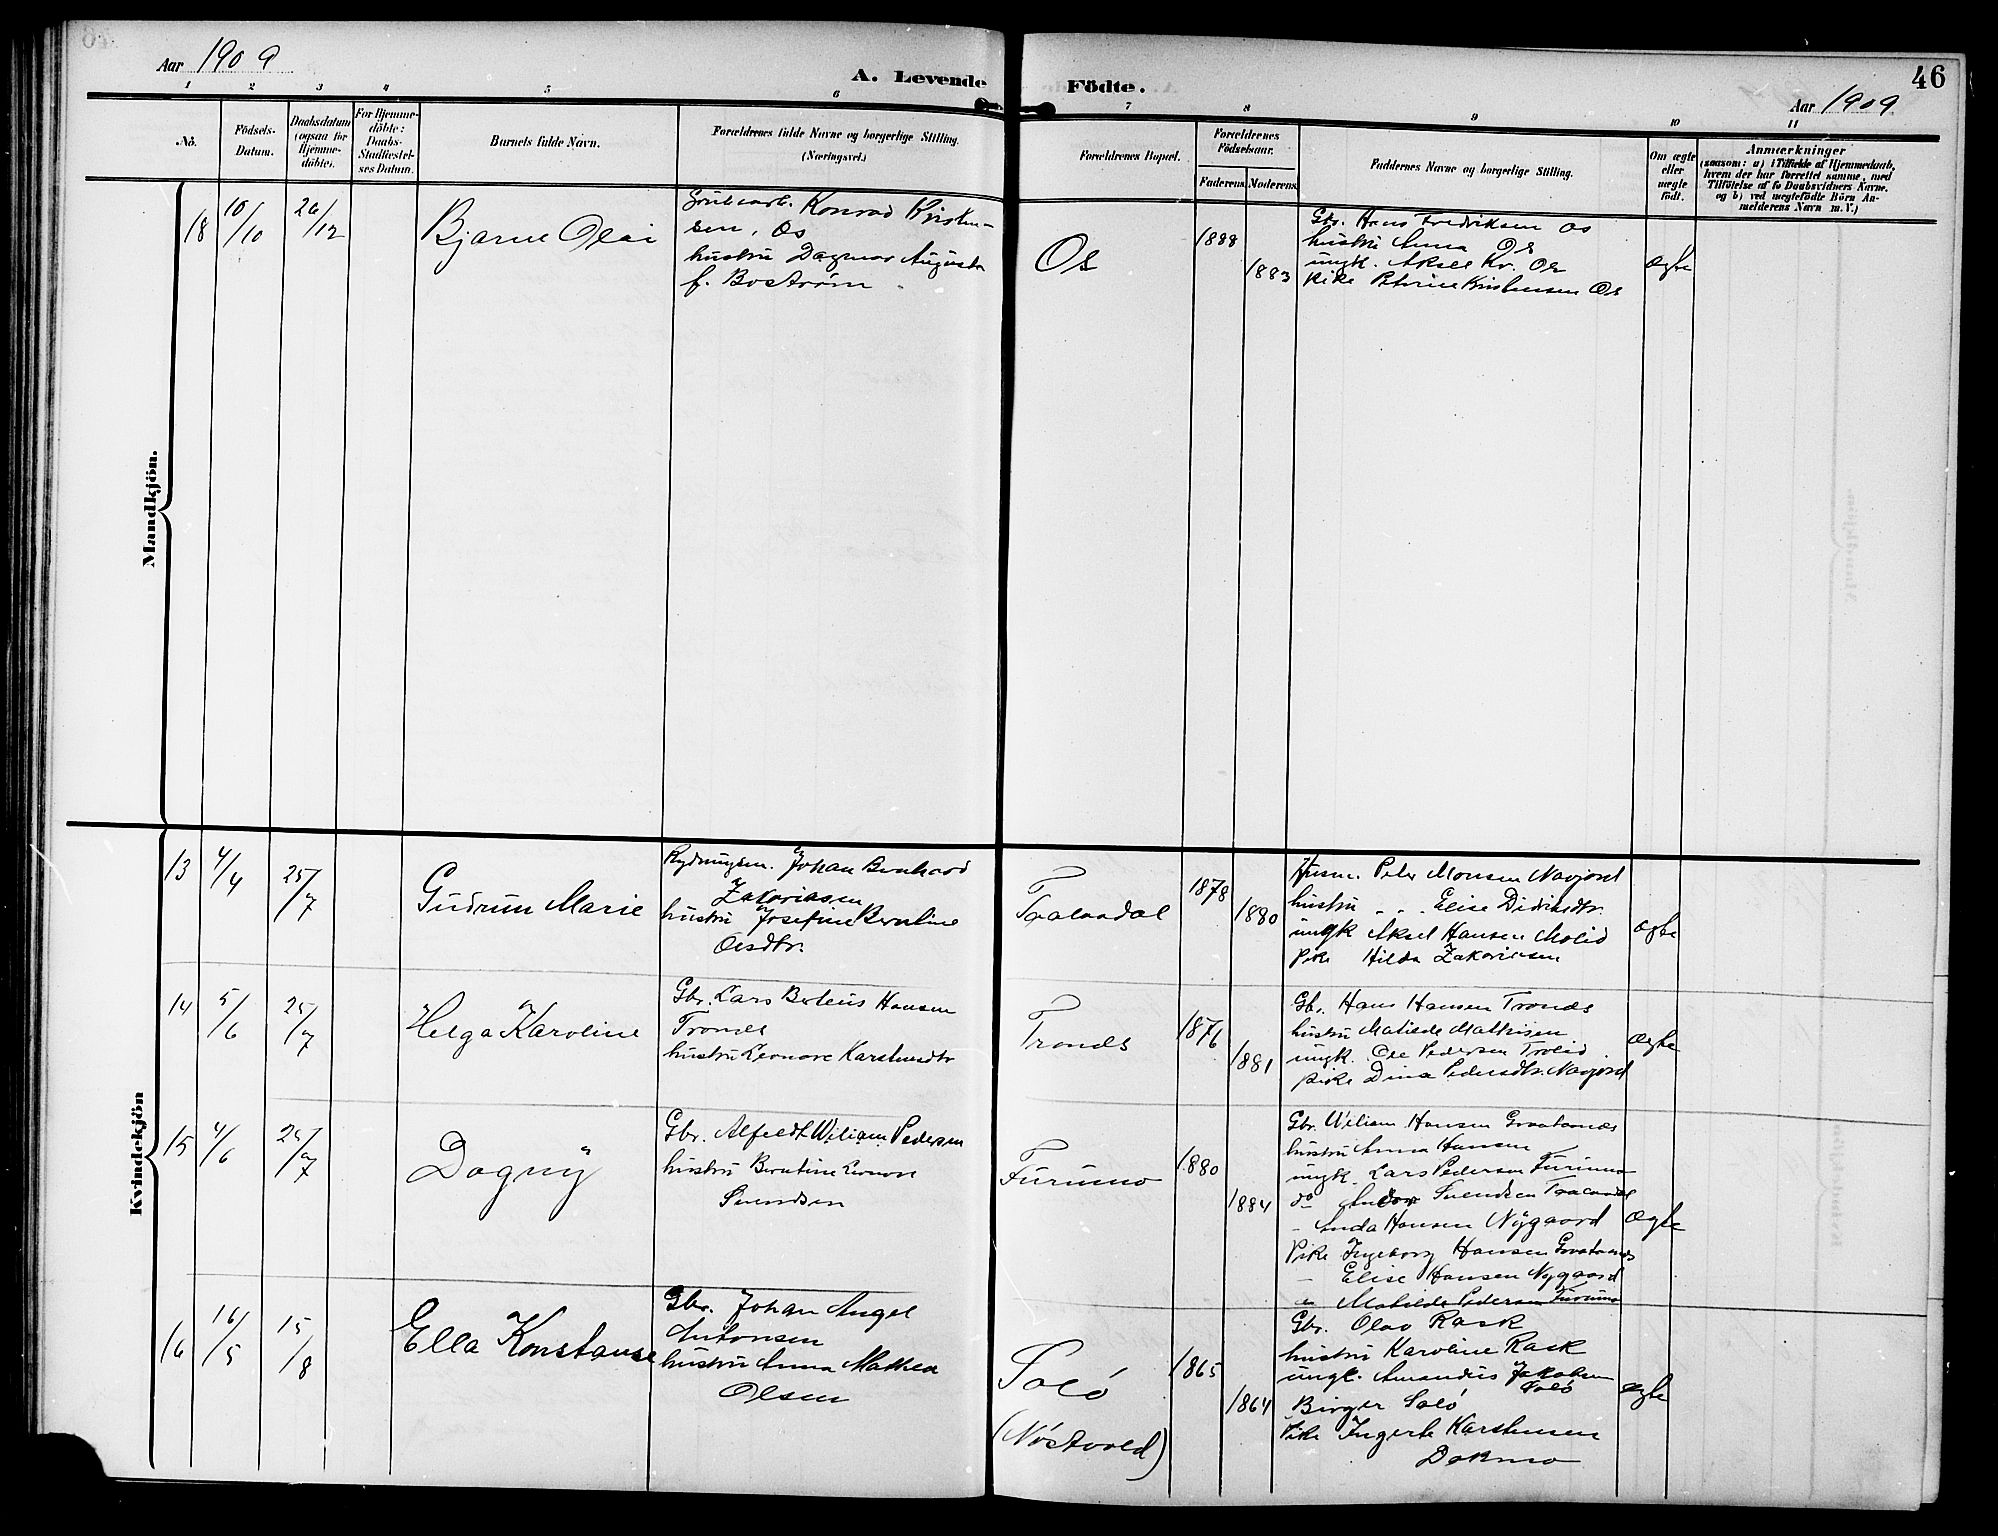 Aar 1909
A. Levende
Födte.
46
Aar 1909
1 2 3 4 5 6 7 8 9 10 11
No.
Födsels-Datum.
Daabsdatum (ogsaa for Hjemme-döbte).
For Hjemme-döbte: Daabs-Stadfæstel-ses Datum.
Barnets fulde Navn.
Forældrenes fulde Navne og borgerlige Stilling. (Næringsvei.)
Forældrenes Bopæl.
Forældrenes Födselsaar.
Faderens. Moderens.
Faddernes Navne og borgerlige Stilling.
Om ægte eller uægte födt.
Anmærkninger
(saasom: a) i Tilfælde af Hjemmedaab,
hvem der har forrettet samme, med
Tilföielse af to Daabsvidners Navne,
og b) ved uægtefödte Börn An-
melderens Navn m. V.)
Mandkjön.
18
10/10
26/12
Bjarne Olai
Grubearb. Konrad Kristen-
sen, Os
hustru Dagmar Augusta
f. Boström
Os
1888
1883
Gbr. Hans Fredriksen Os
hustru Anna Os
ungk. Aksel Kr. Os
pike Petrine Kristensen Os
ægte
Kvindekjön
13
4/4
25/7
Gudrun Marie
Rydningsm. Johan Bernhard
Zakariasen
hustru Josefine Bernline
Olsdtr.
Taalaadal
1878
1880
Husm. Peter Monsen Navjord
hustru " " Elise Didriksdtr.
ungk Aksel Hansen Molid
Pike Hilda Zakariasen
ægte
14
5/6
25/7
Helga Karoline
Gbr. Lars Berteus Hansen
Tronds
hustru Leonore Karstensdtr
Tronds
1876
1881
Gb. Hans Hansen Tronds
hustru Matilde Mathisen
ungk. Ole Pedersen Trolid
pike Dina Pedersdtr. Navjord
ægte
15
4/6
25/7
Dagny
Gbr. Alfeldt Wiliam Pedersen
hustru Berntine Leonore
Svendsen
Furumo
1880
1884
Gbr. Wiliam Hansen Graatanes
hustru Anna Hansen
ungk. Lars Pedersen Furumo
do Andor Svendsen Taalaadal
- Anda Hansen Nygaard
Pike Ingeborg Hansen Graatanes
- Elise Hansen Nygaard
" Matilde Pedersen Furumo
ægte
16
16/5
15/8
Ella Konstanse
Gbr. Johan Angel
Antonsen
hustru Anna Mathea
Olsen
Solö
(Nöstvold)
1865
1864
Gbr. Olav Rask
hustru Karoline Rask
ungk. Amandus Jakobsen
Solö
Birger Solö
Pike Ingerte Karstensen
Dokmo
ægte